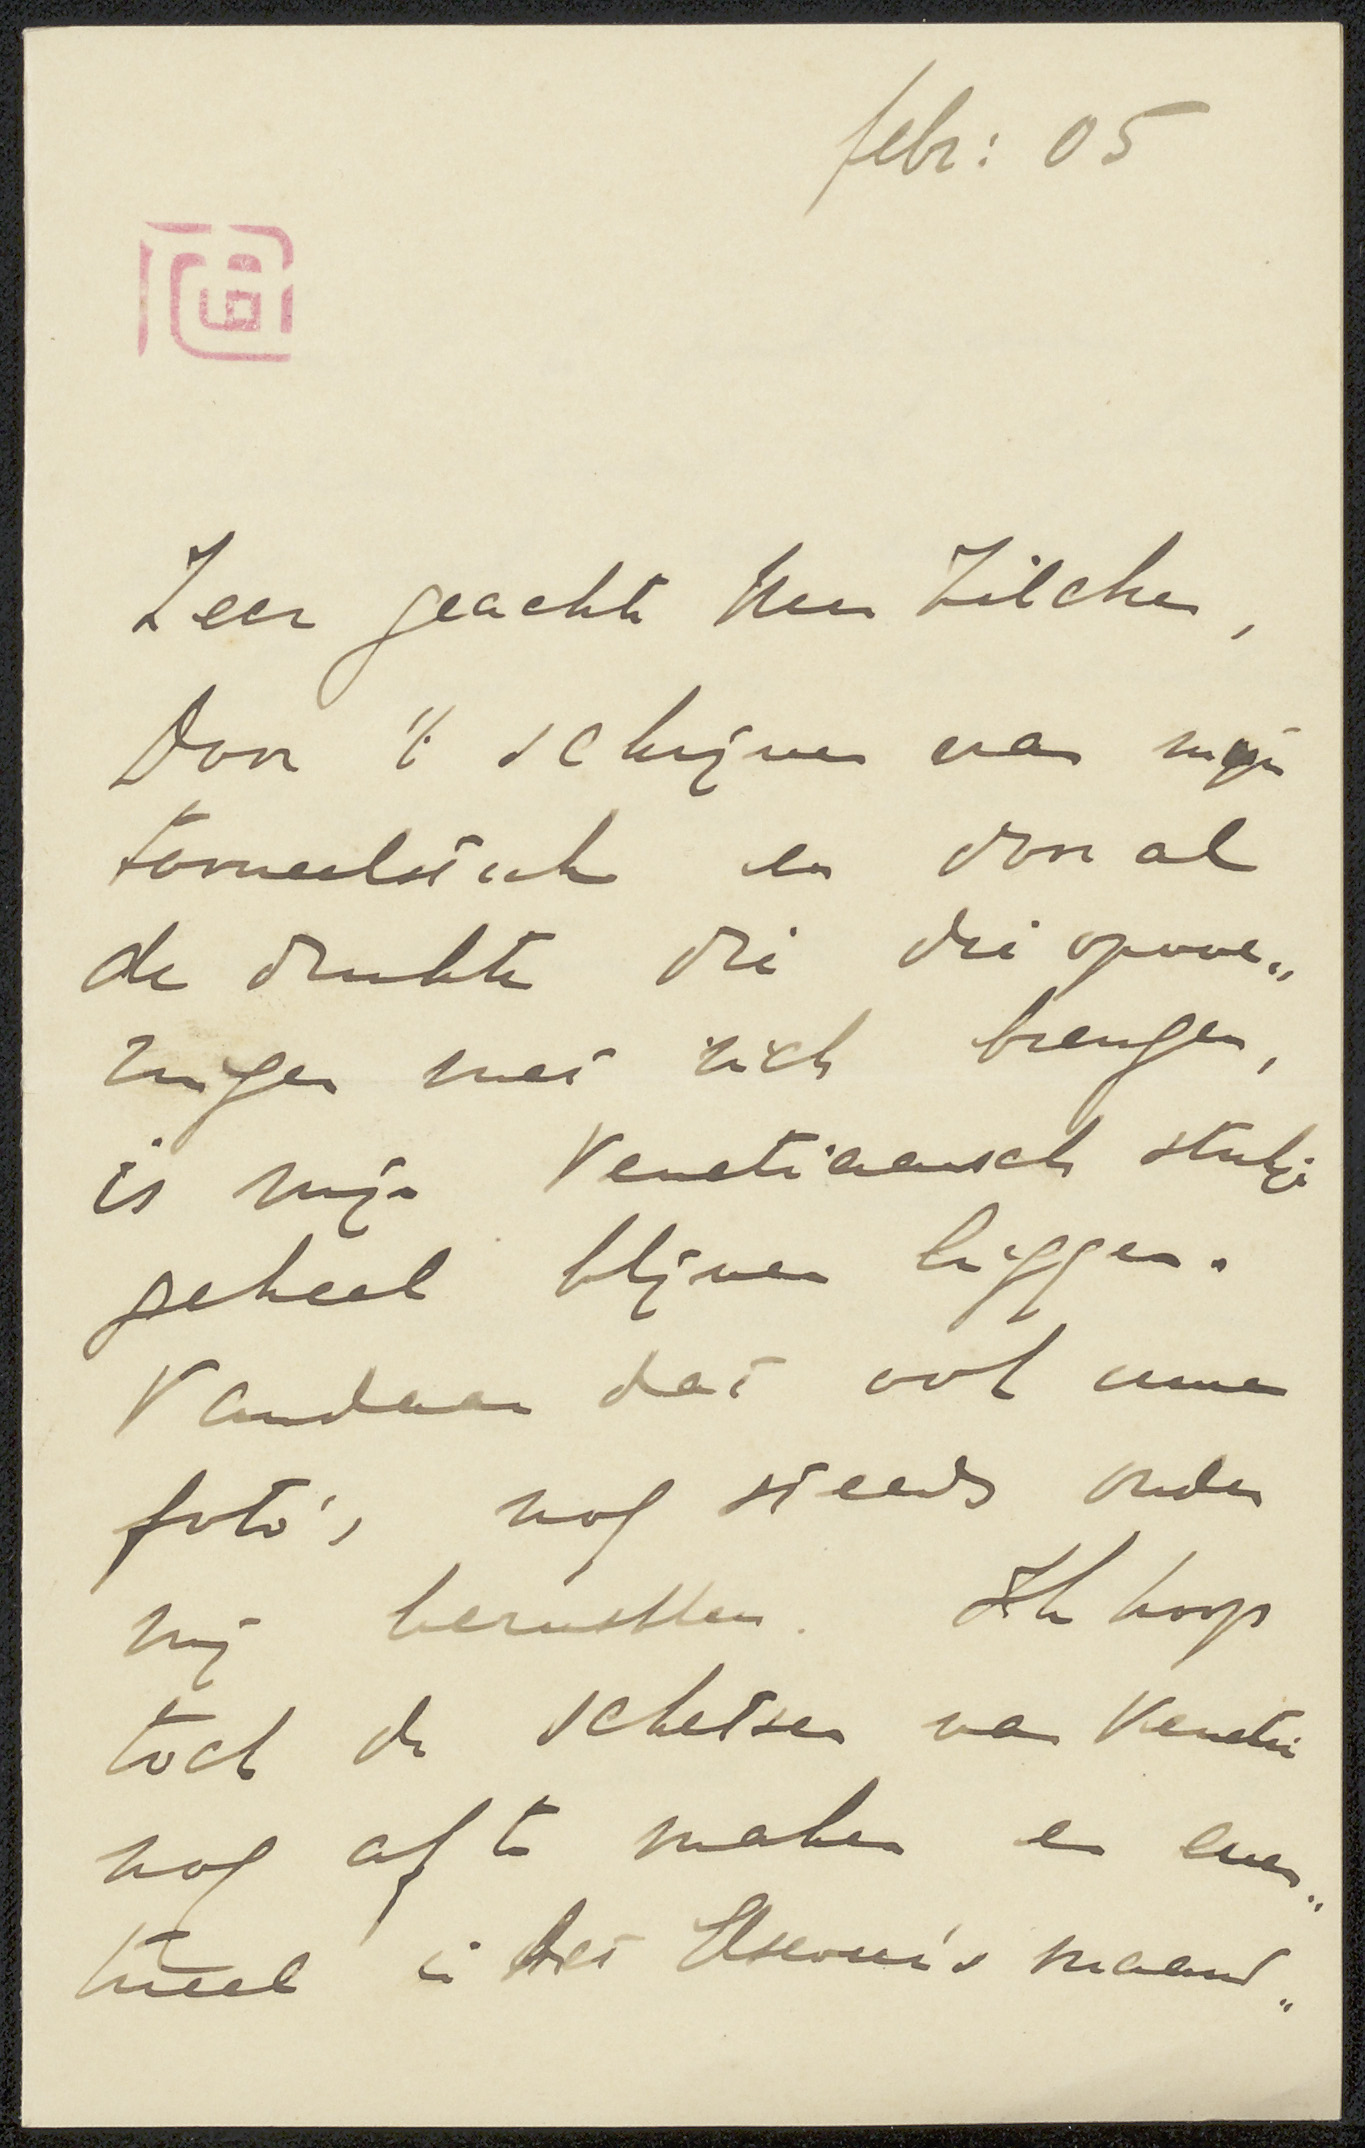 febr: 05
Zeer geachte Heer Zilcken,
Door 't schrijven van mijn
tooneelstuk en door al
de drukte die die opvoe„
ringen met zich brengen,
is mijn Venetiaansch stukje
geheel blijven liggen.
Vandaar dat ook uwe
foto's nog steeds onder
mij berustten. Ik hoop
toch de schetsen van Venetië
nog af te maken en even„
tueel in het Elsevier's maand„